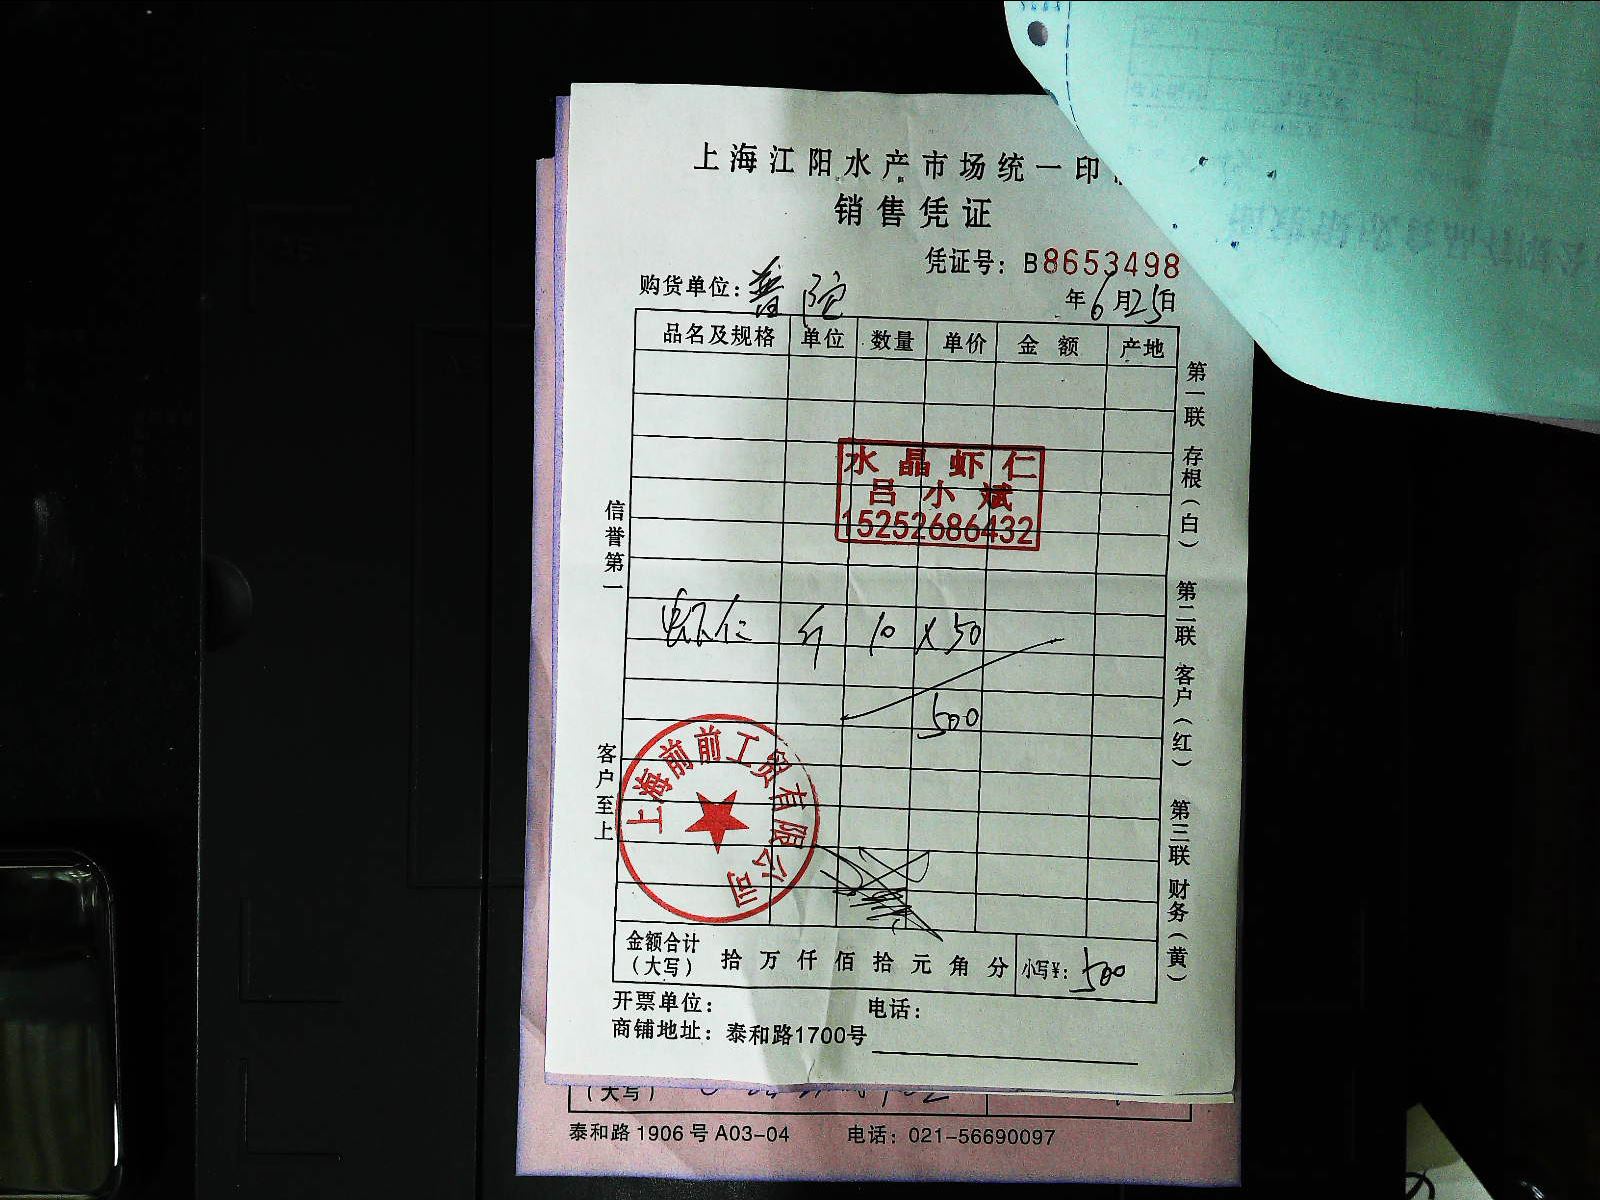 上海江阳水产市场统一印
销售凭证
凭证号：B8653498
购货单位：普陀
年6月25日
品名及规格 单位 数量 单价 金额 产地
水晶虾仁
吕小斌
15252686432
虾仁 斤 10 X50
500
上海前前工贸有限公司
金额合计
（大写） 拾万仟佰拾元角分 小写￥：500
开票单位： 电话：
商铺地址：泰和路1700号
信誉第一
客户至上
第一联 存根（白） 第二联 客户（红） 第三联 财务（黄）
（大写）
泰和路1906号A03-04 电话：021-56690097